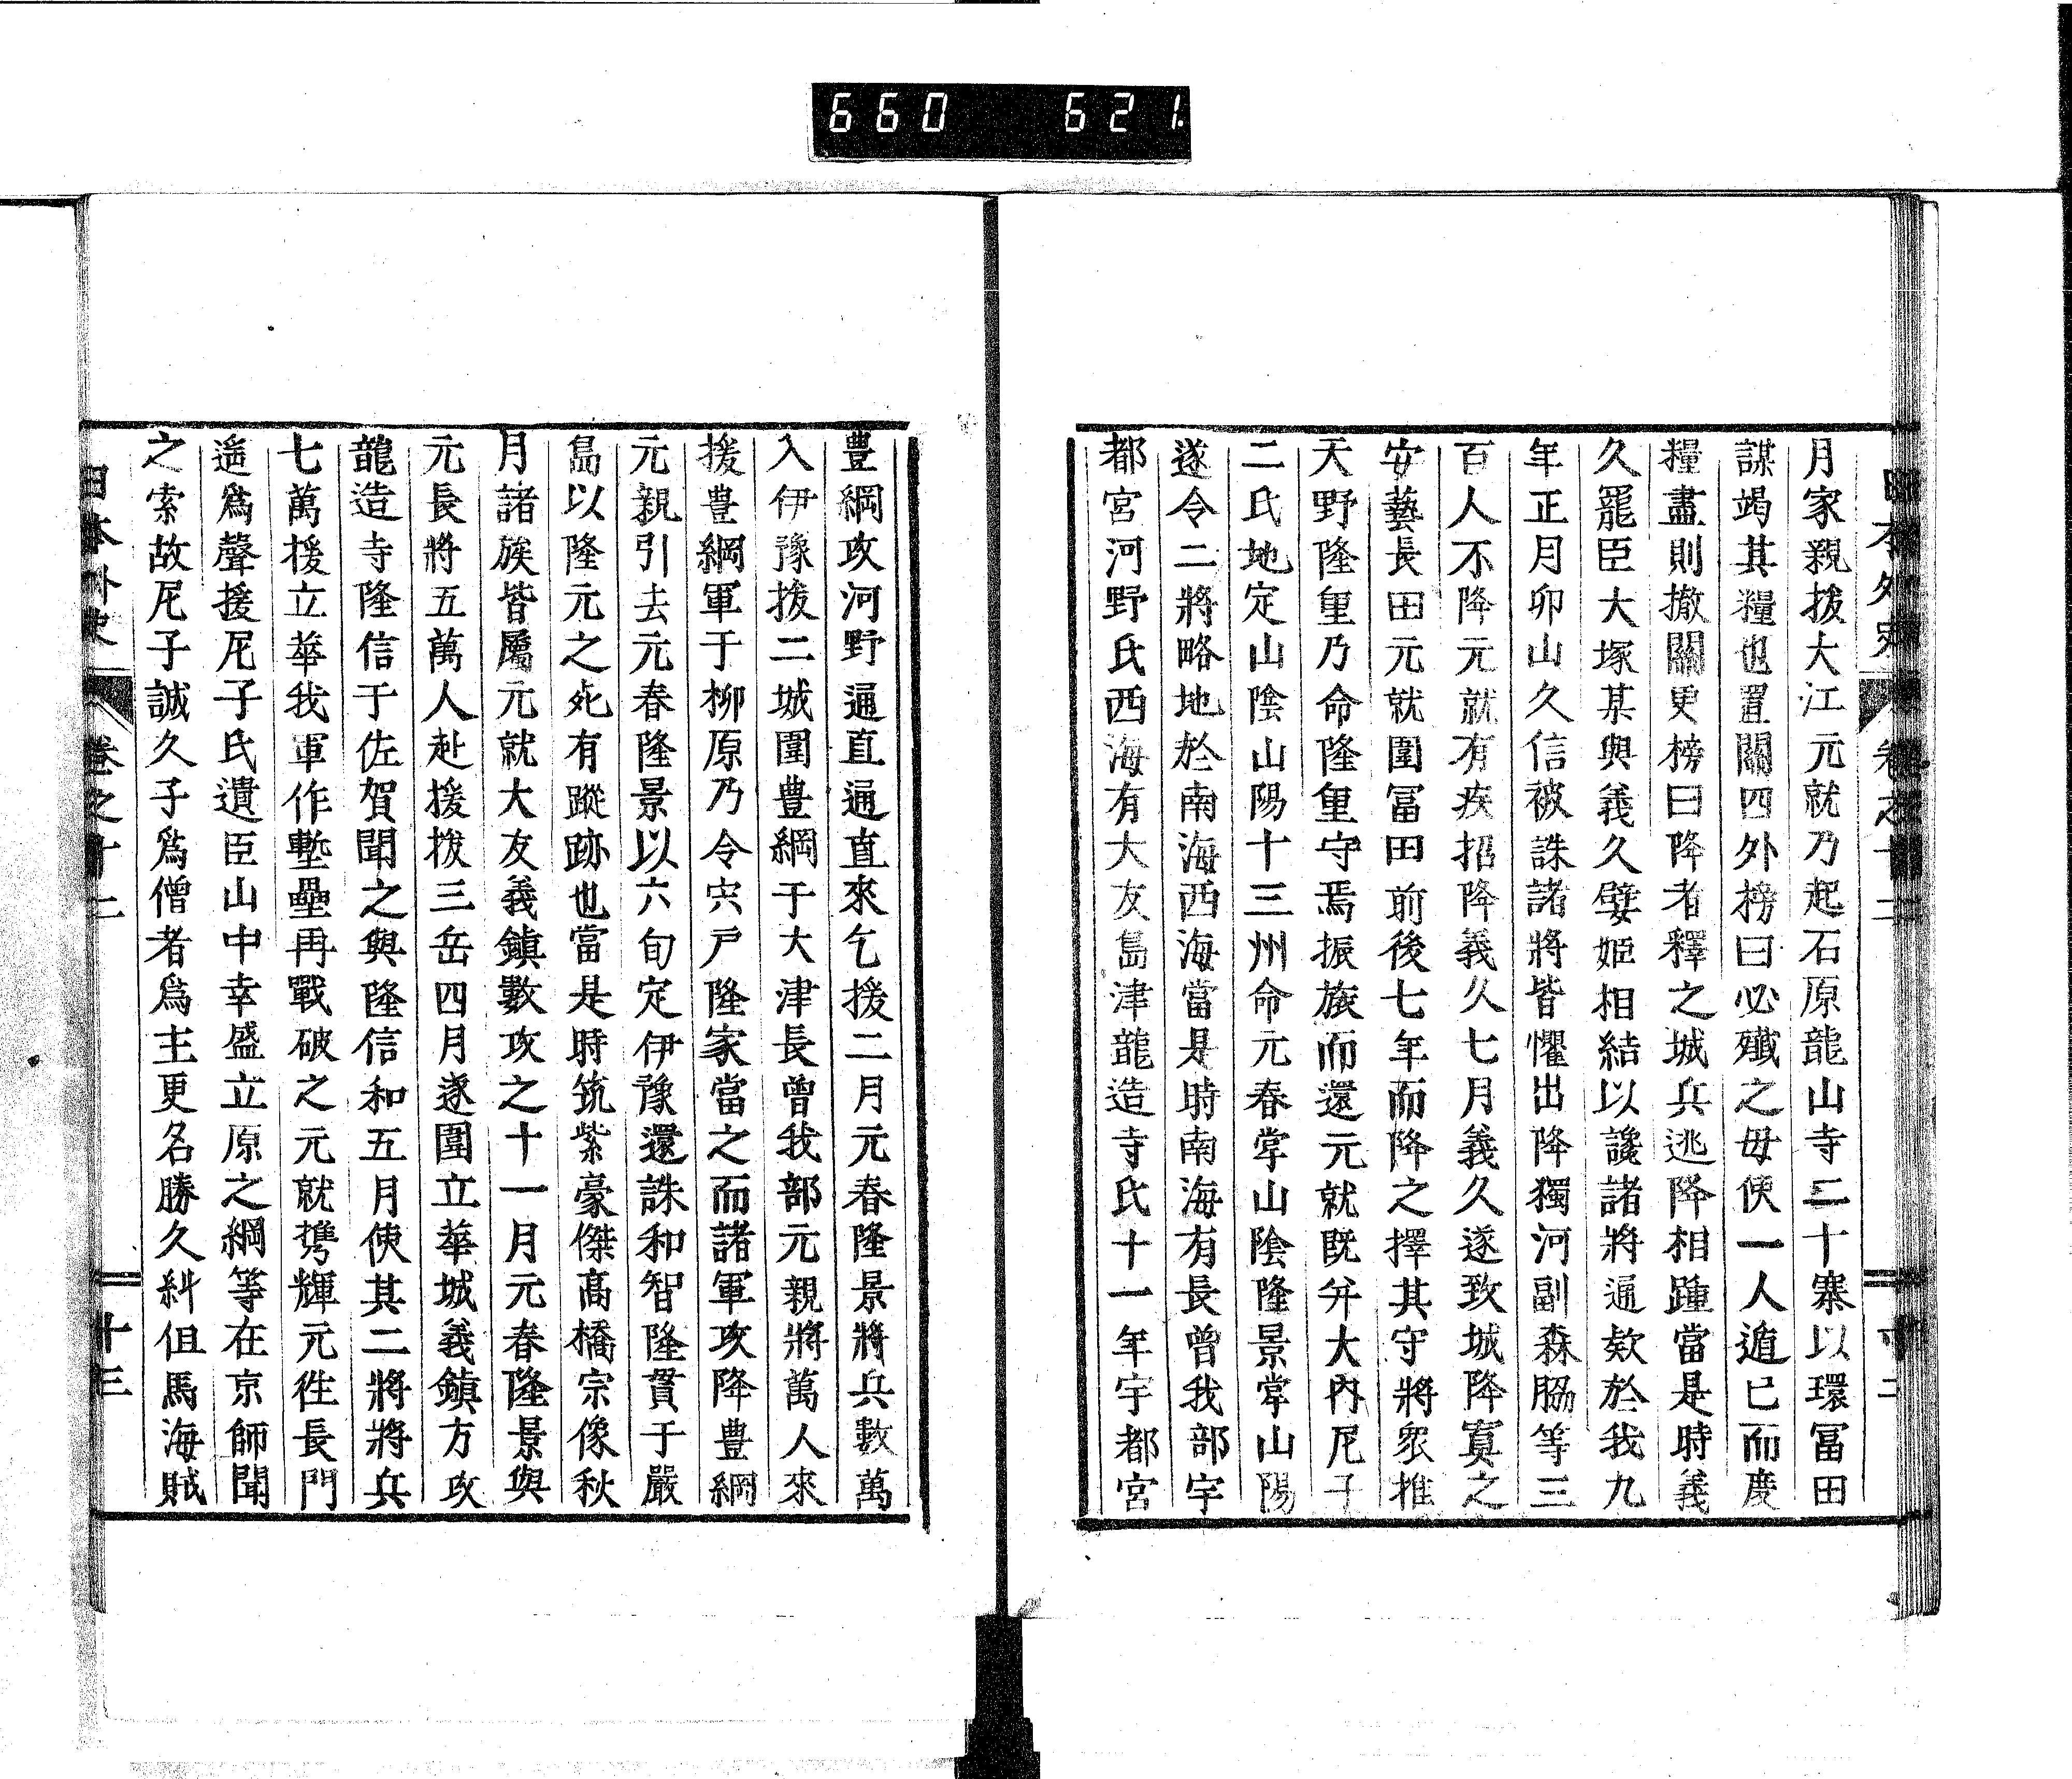 660 621.
日本外史 卷之十二
月家親拔大江元就乃起石原龍山寺二十寨以環冨田
謀竭其糧也置關四外榜曰必殲之毋使一人遁已而慶
糧盡則撤關更榜曰降者釋之城兵逃降相踵當是時義
久罷臣大塚某與義久嬖姫相結以讒諸將通欵於我九
年正月卯山久信被誅諸將皆懼出降獨河副森脇等三
百人不降元就有疾招降義久七月義久遂致城降寘之
安藝長田元就圍冨田前後七年而降之擇其守將衆推
天野隆重乃命隆重守焉振旅而還元就既幷大內尼子
二氏地定山陰山陽十三州命元春掌山陰隆景掌山陽
遂令二將略地於南海西海當是時南海有長曾我部宇
都宮河野氏西海有大友島津龍造寺氏十一年宇都宮
豊綱攻河野通直通直來乞援二月元春隆景將兵數萬
入伊豫拔二城圍豊綱于大津長曾我部元親將萬人來
援豊綱軍于柳原乃令宍戸隆家當之而諸軍攻降豊綱
元親引去元春隆景以六旬定伊豫還誅和智隆貫于嚴
島以隆元之死有蹤跡也當是時筑紫豪傑高橋宗像秋
月諸族皆屬元就大友義鎮數攻之十一月元春隆景與
元長將五萬人赴援拔三岳四月遂圍立華城義鎮方攻
龍造寺隆信于佐賀聞之與隆信和五月使其二將將兵
七萬援立華我軍作塹壘再戰破之元就携輝元徃長門
遥爲聲援尼子氏遺臣山中幸盛立原之綱等在京師聞
之索故尼子誠久子爲僧者爲主更名勝久糾伹馬海賊
日本外史 卷之十二 十三